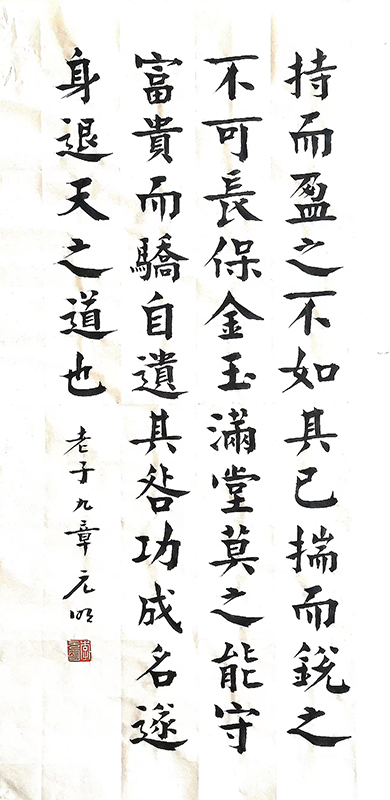 持而盈之不如其已揣而銳之
不可長保金玉滿堂莫之能守
富貴而驕自遺其咎功成名遂
身退天之道也
老子九章元明